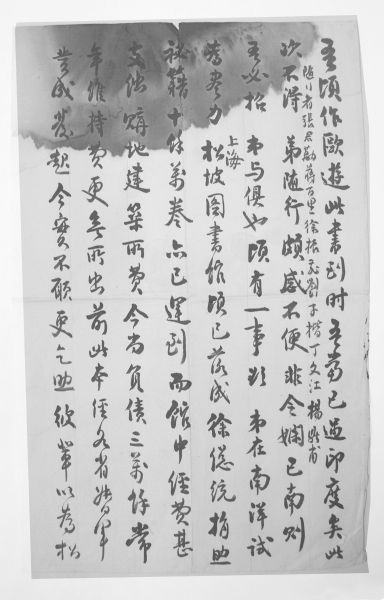 吾頃作歐遊此書到時吾當已過印度矣此
隨行者張君勱蔣百里徐振飛劉子楷丁文江楊鼎甫
次不得弟隨行頗感不便非令嫻已南則
吾必招弟与俱也頃有一事欲弟在南洋試
為盡力上海松坡圖書館頃已落成徐總統捐助
秘籍十餘萬卷亦已運到而館中經費甚
支絀購地建築所費今尚負債三萬餘常
年維持費更無所出前此本經各省將軍
贊成發起今實不願更乞助彼輩以為松